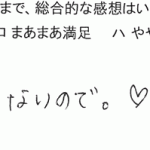 まで、総合的な感想はい
ロ まあまあ満足 ハ やや
ないので。♡